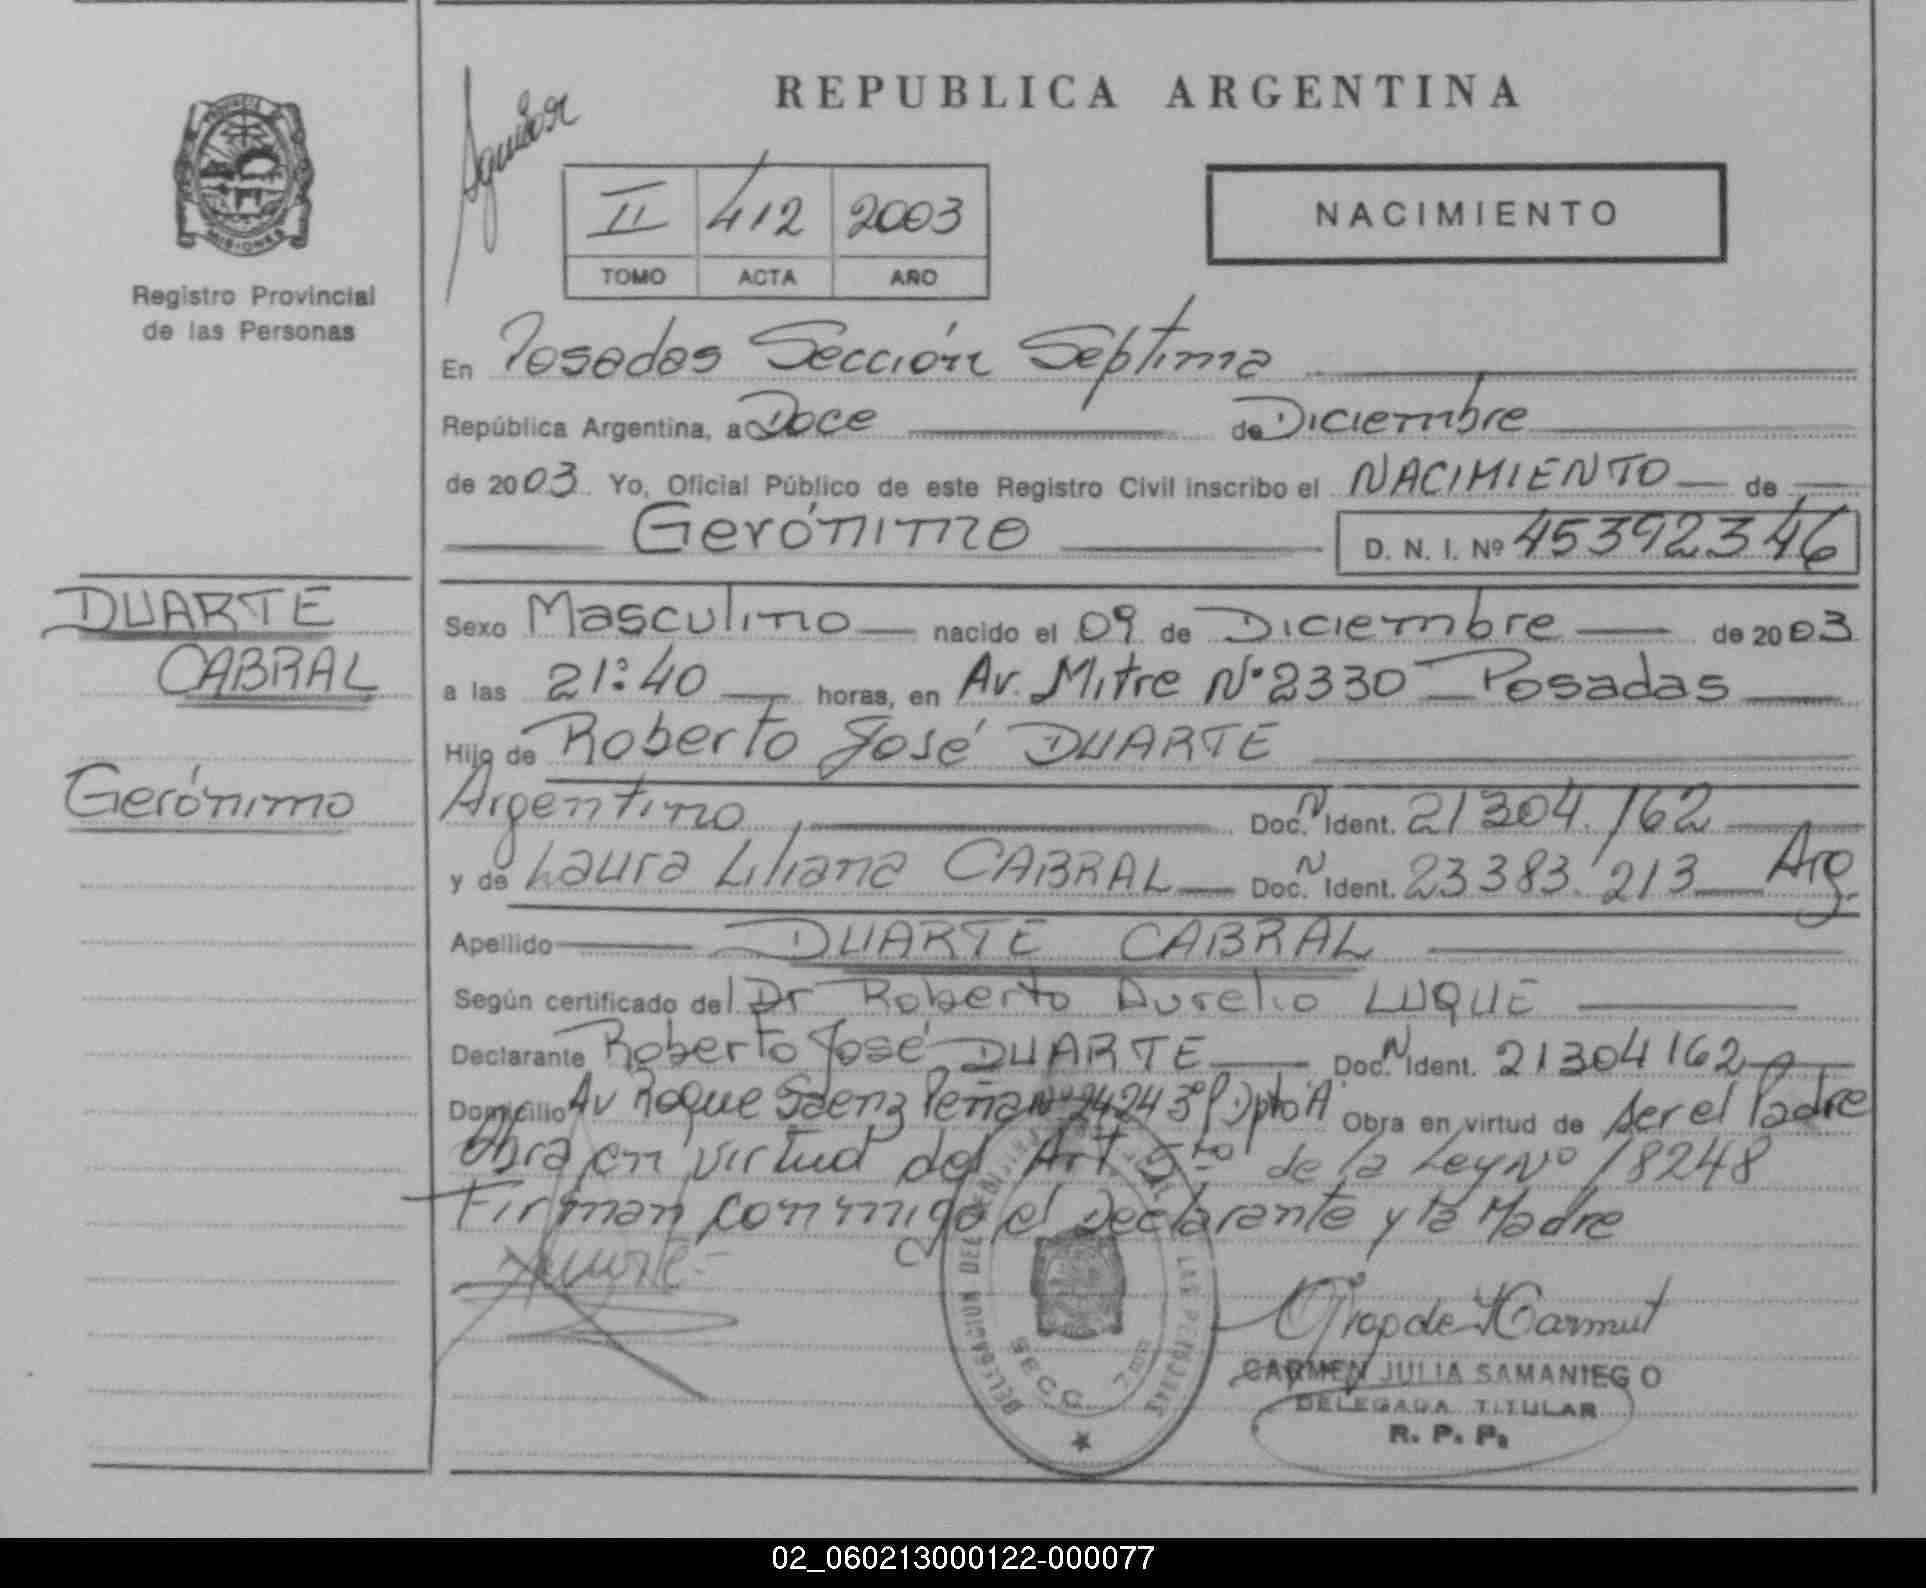 REPUBLICA ARGENTINA
PROVINCIA
MISIONES
Registro Provincial
de las Personas
II 412 2003
TOMO ACTA AÑO
NACIMIENTO
En Posadas Sección Septima
República Argentina, a Doce de Diciembre
de 2003. Yo, Oficial Público de este Registro Civil inscribo el NACIMIENTO de
Gerónimo D. N. I. Nº 45392346
DUARTE
CABRAL
Gerónimo
Sexo Masculino nacido el 09 de Diciembre de 2003
a las 21:40 horas, en Av. Mitre Nº 2330 Posadas
Hijo de Roberto José DUARTE
Argentino, Doc. N Ident. 21304.162
y de Laura Liliana CABRAL Doc. N Ident. 23383.213 Arg.
Apellido DUARTE CABRAL
Según certificado del Dr Roberto Aurelio LUQUE
Declarante Roberto José DUARTE Doc. N Ident. 21304162
Domicilio Av Roque Saenz Peña Nº 2424 3º P Dpto "A" Obra en virtud de ser el Padre
Obra en virtud del Art 5to de la Ley Nº 18248
Firman conmigo el Declarante y la Madre
DELEGACION DEL
LAS PERSONAS
SECC.
CARMEN JULIA SAMANIEGO
DELEGADA TITULAR
R. P. P.
02_060213000122-000077